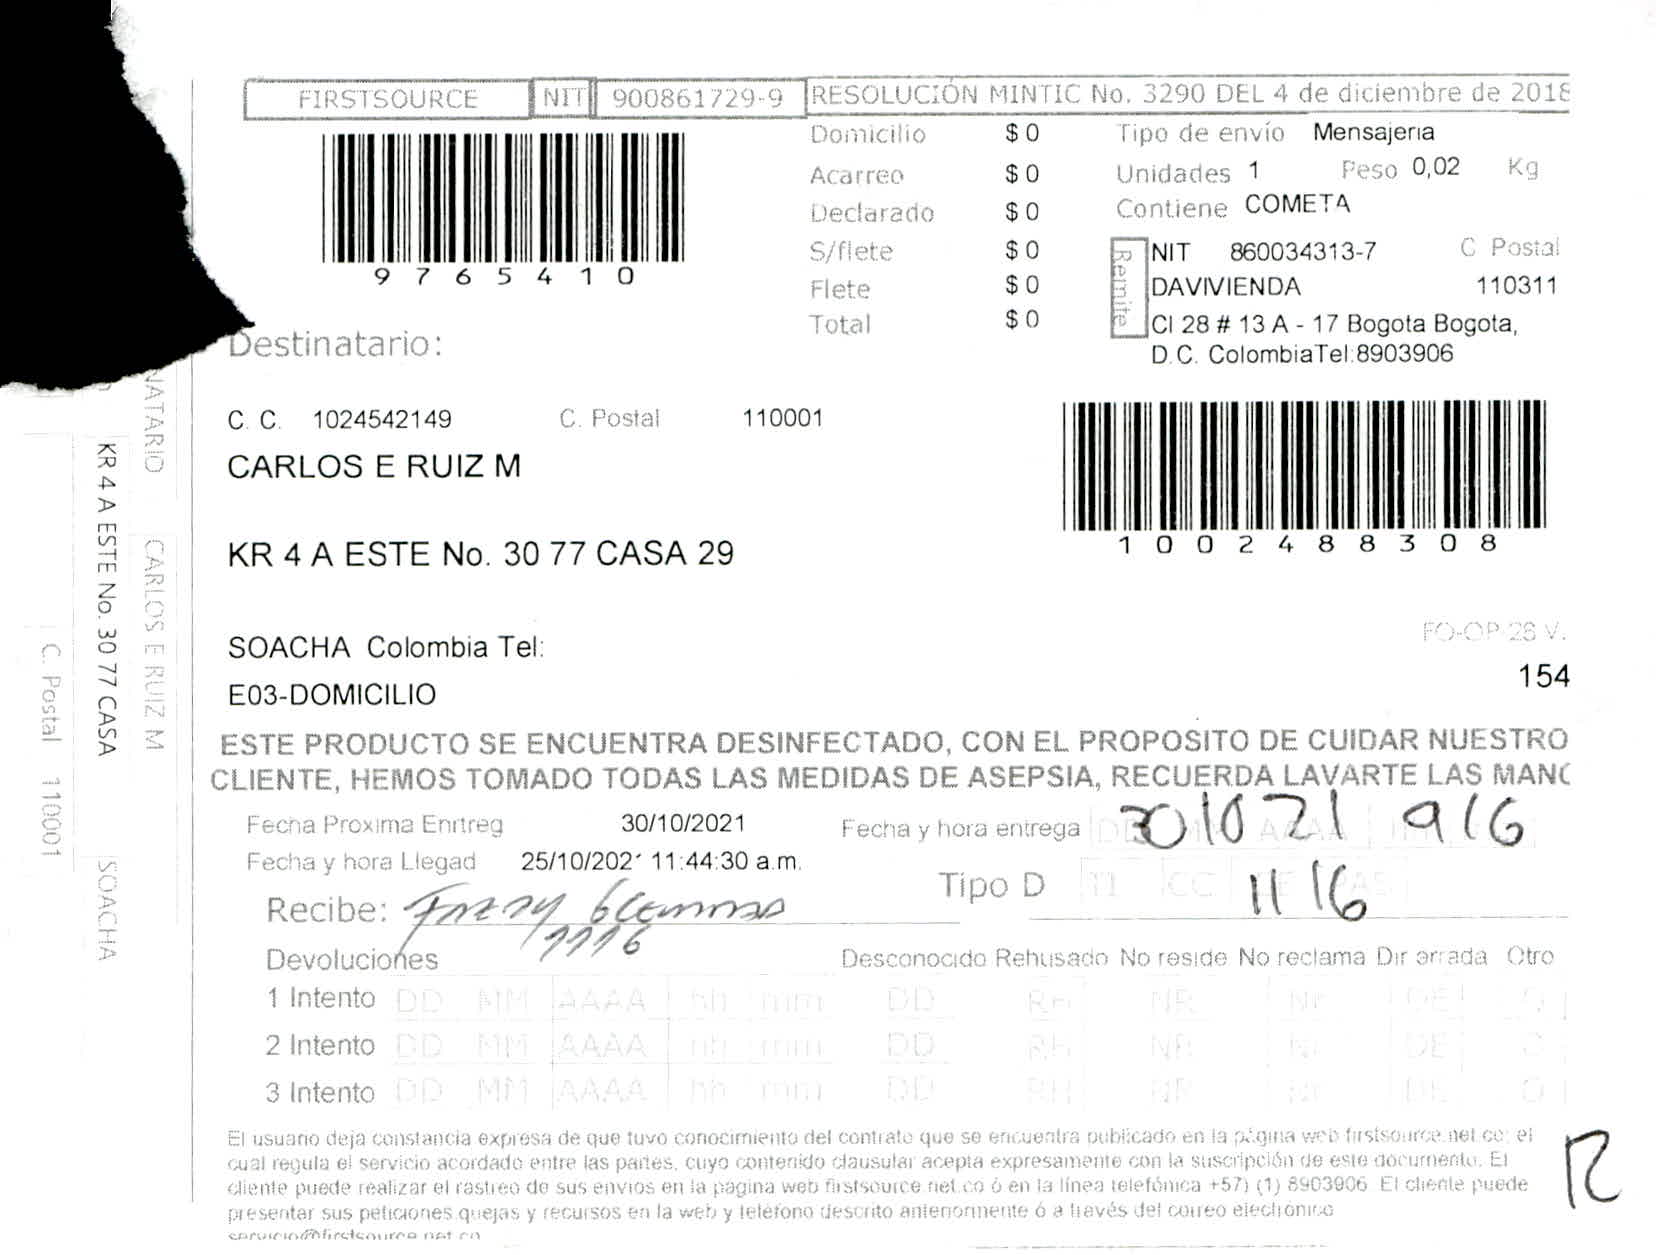 FIRSTSOURCE NIT 900861729-9 RESOLUCIÓN MINTIC No. 3290 DEL 4 de diciembre de 2018
9765410
Domicilio $ 0
Acarreo $ 0
Declarado $ 0
S/flete $ 0
Flete $ 0
Total $ 0
Tipo de envío Mensajeria
Unidades 1 Peso 0,02 Kg
Contiene COMETA
Remite
NIT 860034313-7 C Postal
DAVIVIENDA 110311
Cl 28 # 13 A - 17 Bogota Bogota,
D.C. ColombiaTel:8903906
Destinatario:
C. C. 1024542149 C. Postal 110001
CARLOS E RUIZ M
KR 4 A ESTE No. 30 77 CASA 29
1002488308
SOACHA Colombia Tel:
E03-DOMICILIO
FO-OP-26 V.
154
NATARIO CARLOS E RUIZ M
KR 4 A ESTE No. 30 77 CASA SOACHA
C. Postal 110001
ESTE PRODUCTO SE ENCUENTRA DESINFECTADO, CON EL PROPOSITO DE CUIDAR NUESTRO
CLIENTE, HEMOS TOMADO TODAS LAS MEDIDAS DE ASEPSIA, RECUERDA LAVARTE LAS MANO
Fecha Proxima Enrtreg 30/10/2021
Fecha y hora entrega DD MM AAAA 301021 916
Fecha y hora Llegad 25/10/2021 11:44:30 a.m.
Tipo D TI CC CE PAS 1116
Recibe:
1116
Devoluciones Desconocido Rehusado No reside No reclama Dir errada Otro
1 Intento DD MM AAAA hh mm DD RH NR Nr DE O
2 Intento DD MM AAAA hh mm DD RH NR Nr DE O
3 Intento DD MM AAAA hh mm DD RH NR Nr DE O
El usuario deja constancia expresa de que tuvo conocimiento del contrato que se encuentra publicado en la página web firstsource.net.co; el
cual regula el servicio acordado entre las partes, cuyo contenido clausular acepta expresamente con la suscripción de este documento. El
cliente puede realizar el rastreo de sus envios en la pagina web firstsource.net.co ó en la línea telefónica +57) (1) 8903906 El cliente puede
presentar sus peticiones quejas y recursos en la web y teléfono descrito anteriormente ó a través del correo electronico
servicio@firstsource.net.co
R